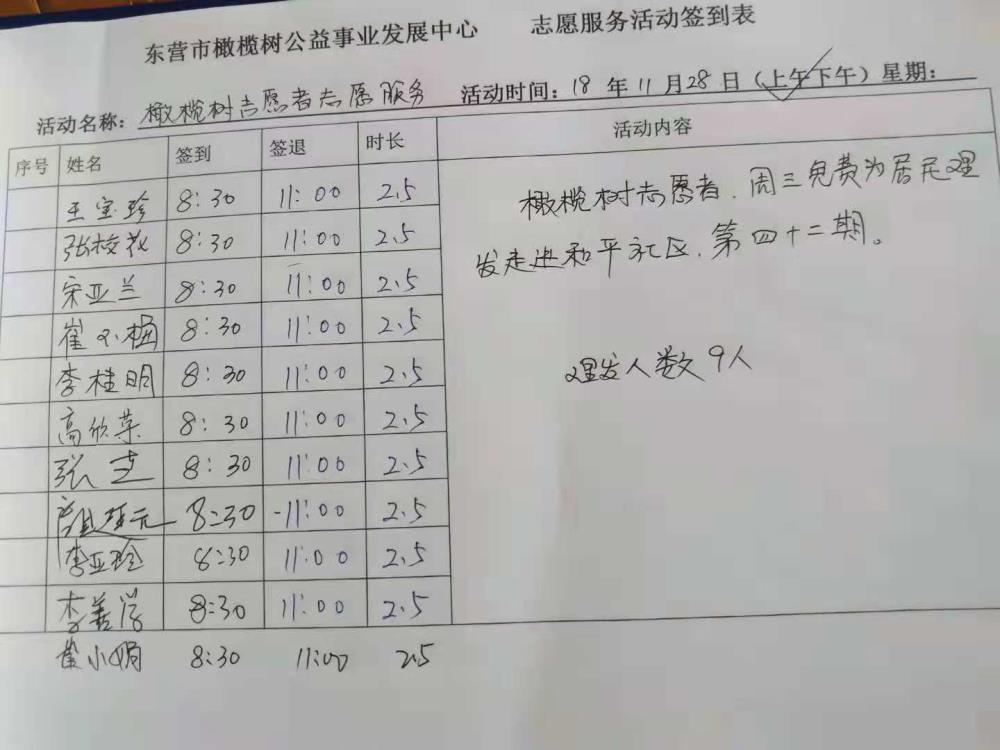 东营市橄榄树公益事业发展中心 志愿服务活动签到表
活动名称：橄榄树志愿者志愿服务 活动时间：18年11月28日（上午下午）星期：
序号 姓名 签到 签退 时长 活动内容
王宝珍 8:30 11:00 2.5
张 8:30 11:00 2.5
宋亚兰 8:30 11:00 2.5
崔小梅 8:30 11:00 2.5
李桂明 8:30 11:00 2.5
高欣荣 8:30 11:00 2.5
张 8:30 11:00 2.5
8:30 11:00 2.5
李亚玲 8:30 11:00 2.5
李善学 8:30 11:00 2.5
崔小娟 8:30 11:00 2.5
橄榄树志愿者.周三免费为居民理
发走进和平社区.第四十二期。
理发人数9人